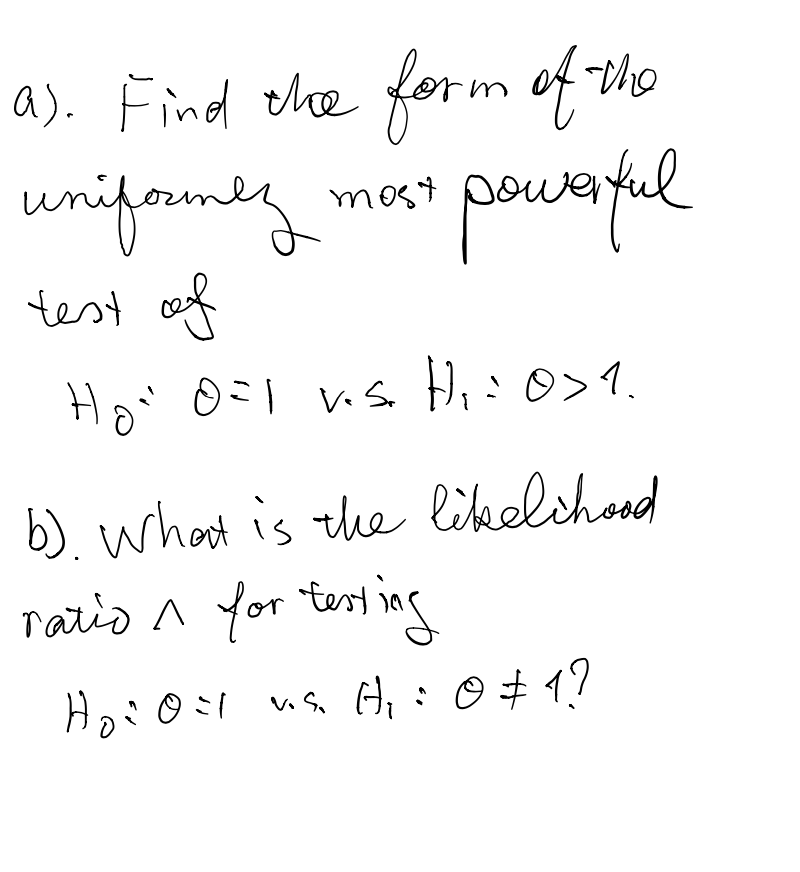 a). Find the form of the
uniformly most powerful
test of
H₀: θ=1 v.s. H₁: θ>1.
b). What is the likelihood
ratio Λ for testing
H₀: θ=1 v.s. H₁: θ≠1?